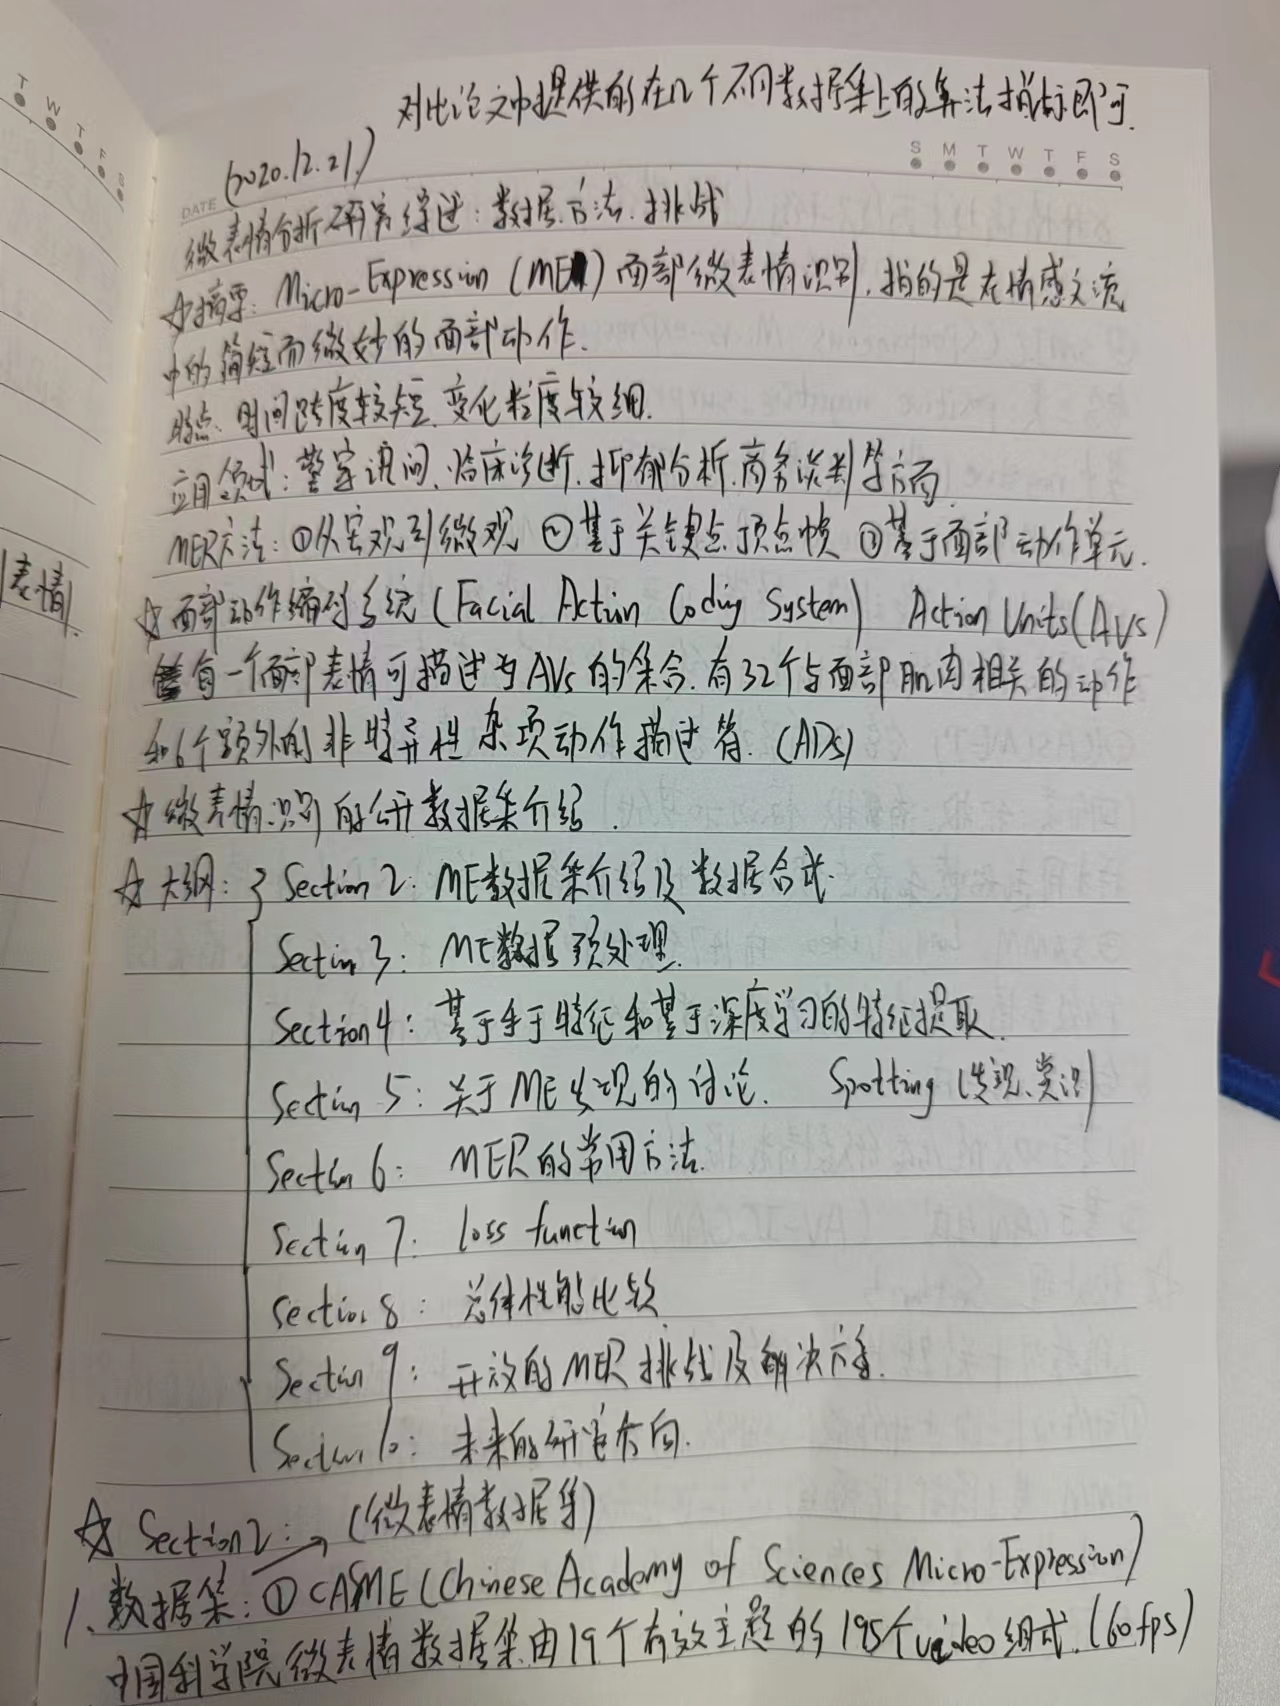 对比论文中提供的在几个不同数据集上的算法指标即可.
T W T F S
S M T W T F S
DATE (2020.12.21)
微表情分析研究综述:数据.方法.挑战
☆摘要: Micro-Expression (MER) 面部微表情识别,指的是在情感交流
中的简短而微妙的面部动作.
特点.时间跨度较短.变化粒度较细.
应用领域:警察讯问.临床诊断.抑郁分析.商务谈判等方面
MER方法:①从宏观引微观 ②基于关键点顶点帧 ③基于面部动作单元.
表情
☆面部动作编码系统(Facial Action Coding System) Action Units(AUs)
每一个面部表情可描述为AUs的集合.有32个与面部肌肉相关的动作
和6个额外的非特异性杂项动作描述符.(ADs)
☆微表情识别的公开数据集介绍.
☆大纲: Section 2: ME数据集介绍及数据合成.
Section 3: ME数据预处理.
Section 4: 基于手于特征和基于深度学习的特征提取.
Section 5: 关于ME发现的讨论. Spotting (发现、赏识)
Section 6: MER的常用方法.
Section 7: loss function
Section 8: 总体性能比较
Section 9: 开放的MER挑战及解决方案.
Section 10: 未来的研究方向.
☆ Section 2: → (微表情数据集)
1.数据集:①CASME(Chinese Academy of Sciences Micro-Expression)
中国科学院微表情数据集由19个有效主题的195个video组成.(60fps)